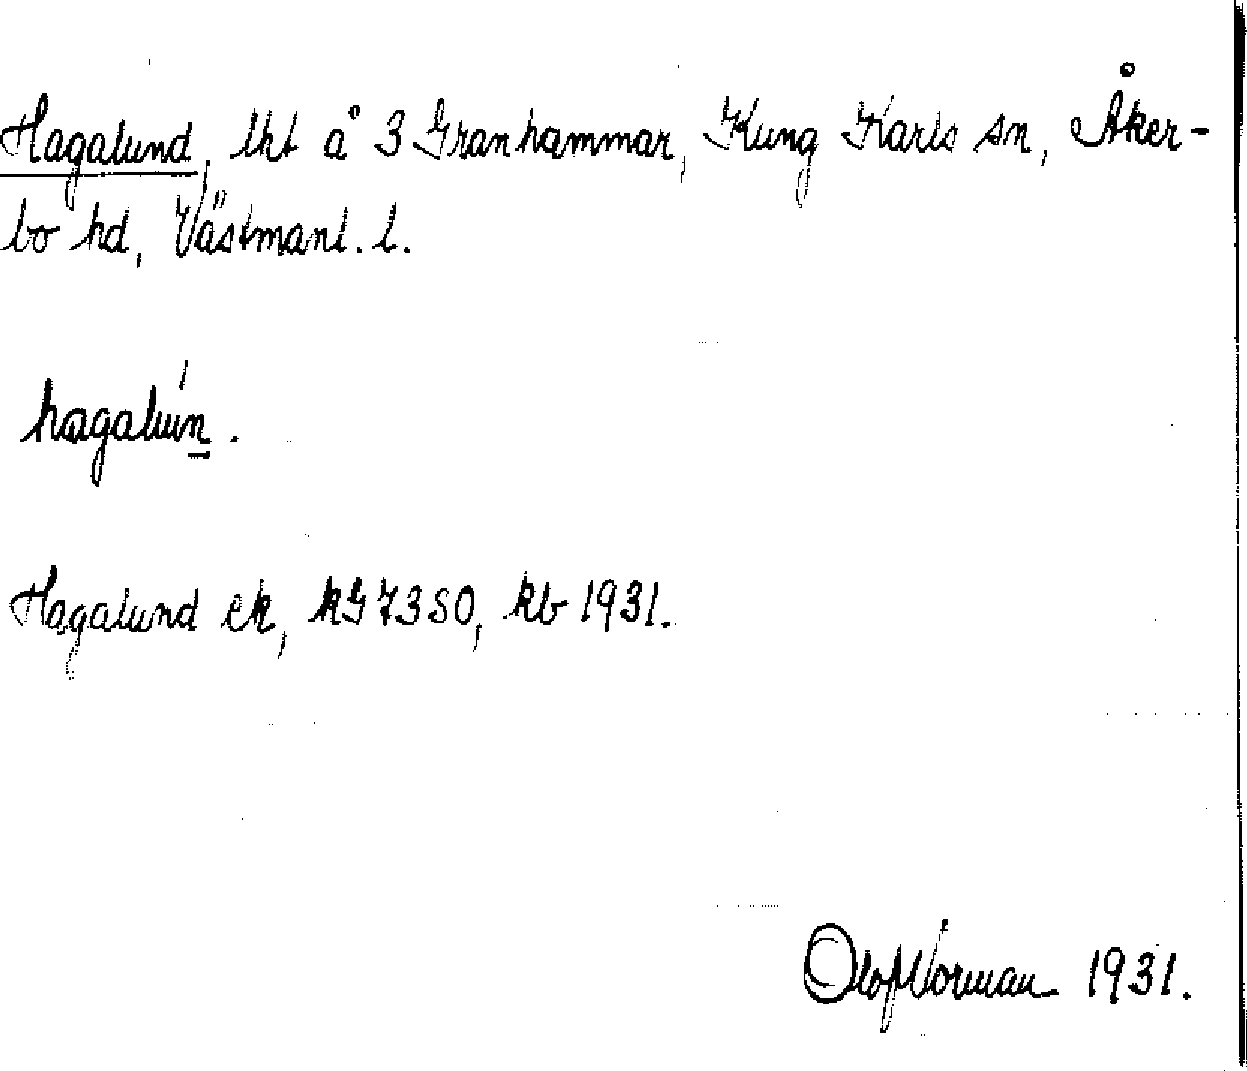 Hagalund, lht å 3 Granhammar, Kung Karls sn, Åker-
bo hd, Västmanl. l.
hagalún.
Hagalund ek, kG 7380, kb 1931.
Olof Norman 1931.